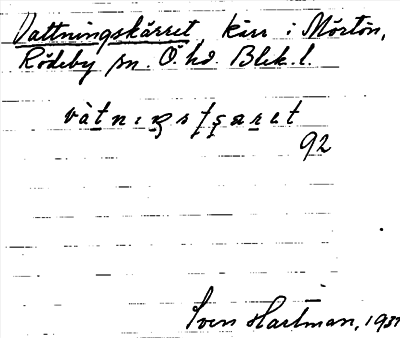 Vattningskärret, kärr i Mörtön,
Rödeby sn. Ö. hd. Blek. l.
92
Sven Hartman, 1931